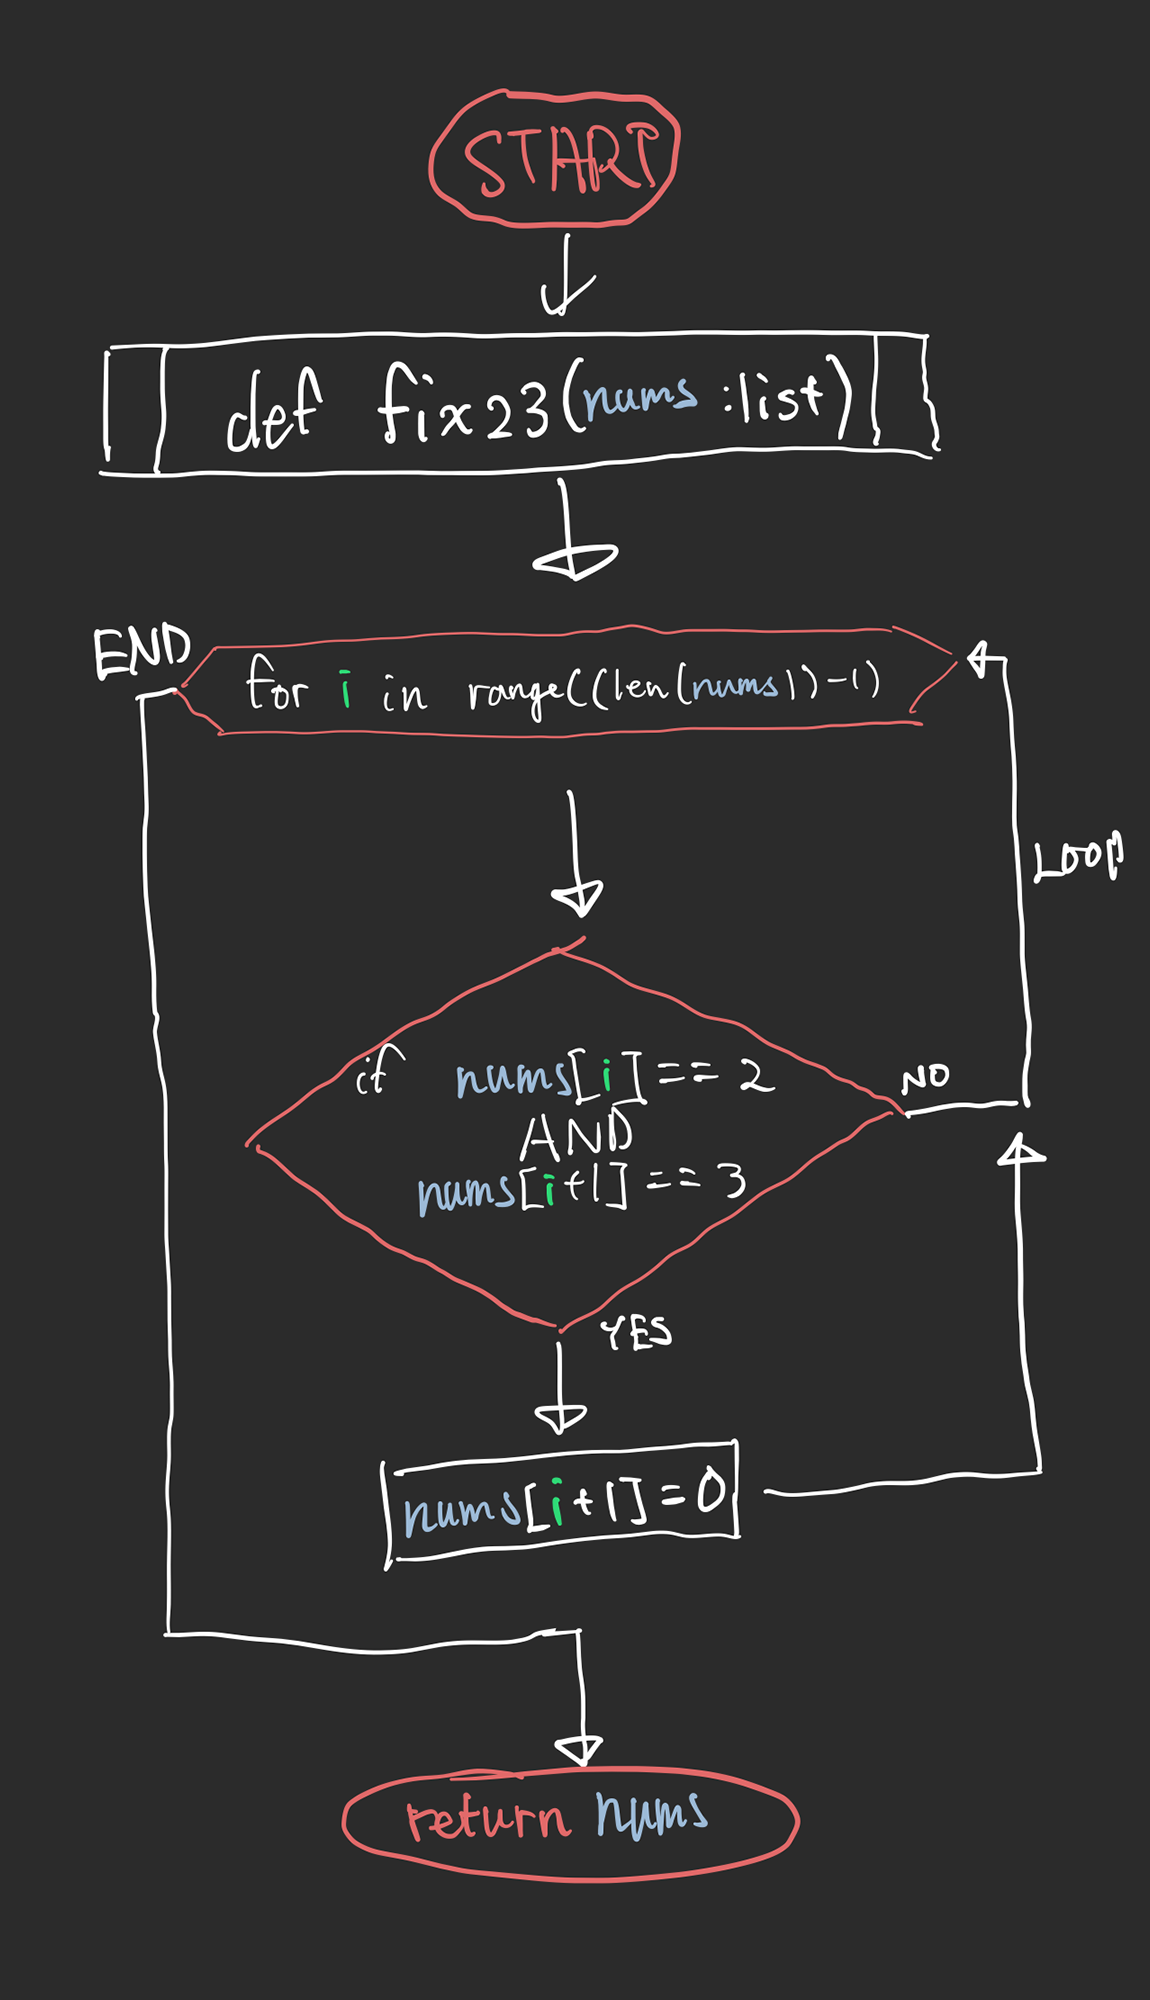 START
def fix23(nums :list)
END
for i in range((len(nums))-1)
LOOP
if nums[i] == 2
AND
nums[i+1] == 3
NO
YES
nums[i+1]=0
return nums